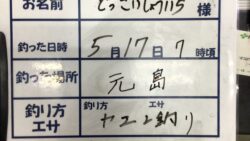 お名前 どっこいしょ115 様
釣った日時 5月17日7時頃
釣った場所 元島
釣り方 エサ
釣り方 エサ
ヤエン釣り